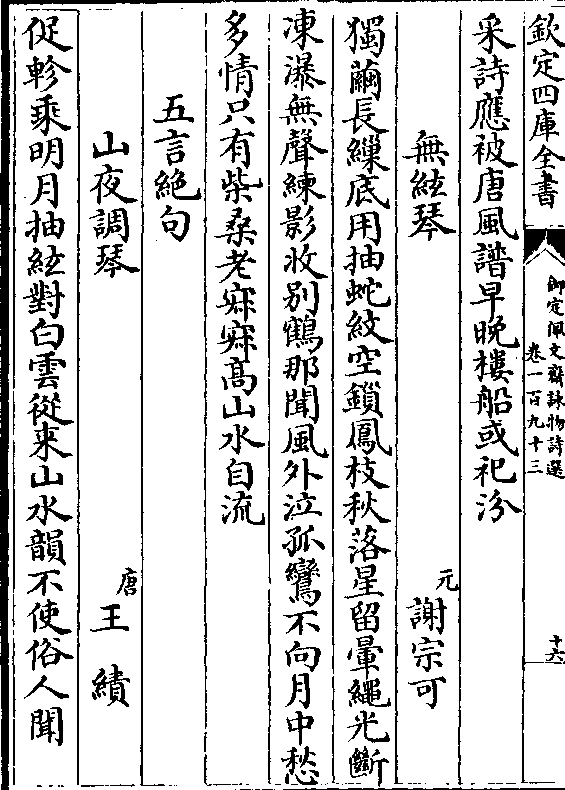 欽定四庫全書
御定佩文齋詠物詩選
卷一百九十三
十六
采詩應被唐風譜早晚樓船或祀汾
無絃琴
元
謝宗可
獨繭長繅底用抽蛇紋空鎖鳳枝秋落星留暈繩光斷
凍瀑無聲練影收别鶴那聞風外泣孤鸞不向月中愁
多情只有柴桑老寂寂髙山水自流
五言絶句
山夜調琴
唐
王績
促軫乘明月抽絃對白雲從来山水韻不使俗人聞